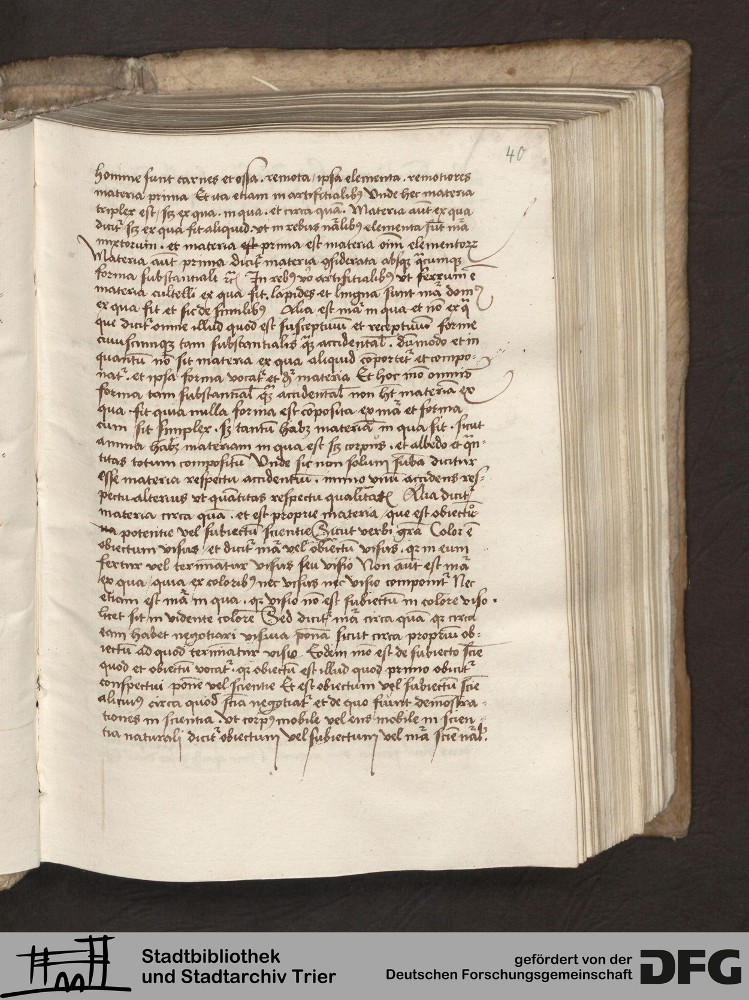 40
homine sunt carnes et ossa. remota ipsa elementa. remotiores
materia prima Et ita etiam in artificialibꝰ Unde hec materia
triplex est scꝫ ex qua. in qua. et circa quā. Materia aūt ex qua
dicit᷑ scꝫ ex qua fit aliquid. ut in rebus nālibꝰ elementa sūt mā
mixtorum. et materia prima est materia oīm elementorꝝ
Materia aūt prima dicit᷑ materia cōsiderata absqꝫ qūcumqꝫ
forma substantiali In rebꝰ vō artificialibꝰ ut ferrum ē
materia cultelli ex qua fit. lapides et lingna sunt mā domꝰ
ex qua fit et sic de similibꝰ Alia est mā in qua et nō ex q̄
que dicit᷑ omne illud quod est susceptiuū et receptiuū forme
cuiuscumqꝫ tam substantialis qꝫ accidental̄. dūmodo et in
quantū nō sit materia ex qua aliquid cōponet᷑ et compo-
nat᷑. et ipsa forma vocat᷑ et dr̄ materia Et hoc mō omnis
forma tam substantial̄ qꝫ accidental̄ non hꝫ materiā ex
qua. sit quia nulla forma est cōposita ex mā et forma
cum sit simplex. sꝫ tantū habꝫ materiā in qua sit. sicut
anima habꝫ materiam in qua est scꝫ corpus. et albedo et qn̄-
titas totum compositū Unde sic non solum sūba dicitur
esse materia respectu accidentiū. immo vnū accidens res-
pectu alterius ut quātitas respectu qualitatis Alia dicit᷑
materia circa quā. et est proprie materia, que est obiectū
potentie vel subiectū scientie Sicut verbi grā Color ē
obiectum visus et dicit᷑ mā vel obiectū visus. qꝛ in eum
fertur vel terminatur visus seu visio Non aūt est mā
ex qua quia ex coloribꝰ nec visus nec visio componit᷑ Nec
etiam est mā in qua. qꝛ visio nō est subiectū in colore viso.
licet sit in vidente colorē Sed dicit᷑ mā circa quā qꝛ circa
eam habet negotiari visiua potētia sicut circa propriū ob-
iectū ad quod terminatur visio. Eodem mō est de subiecto sciē
quod et obiectū vocat᷑. qꝛ obiectū est illud quod primo obicit᷑
conspectui potētie vel scientie Et est obiectum vel subiectū sciē
alicuiꝰ circa quod scīa negotiat᷑ et de quo fiunt demōstra-
tiones in scientia. ut corpꝰ mobile vel ens mobile in scien-
tia naturali dicit᷑ obiectum vel subiectum vel mā sciē nāl̄.
Stadtbibliothek
und Stadtarchiv Trier
gefördert von der
Deutschen Forschungsgemeinschaft
DFG